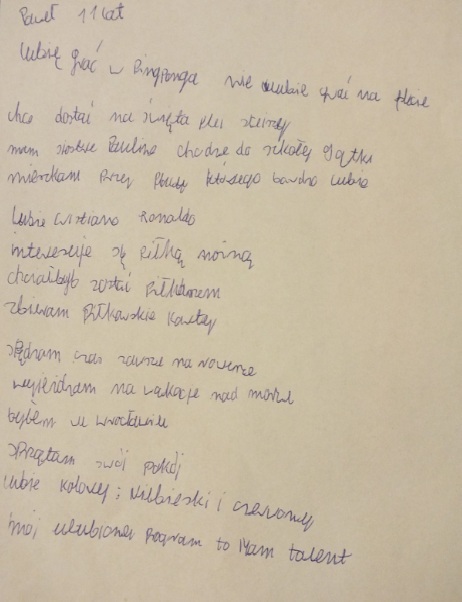 Paweł 11 lat
lubię grać w Pingponga nie lubię grać na flecie
chce dostać na święta plej stejszy
mam siostrę Pauline chodzę do szkołej Gątki
mieszkam przy którego bardzo lubie
lubie Cristiano Ronaldo
interesuje się piłką nożną
chciałbyb zostać piłkarzem
zbieram piłkarskie kartey
spędzam czas zawsze na rowerze
wyjeżdzam na wakacje nad morze
byłem w wrocławiu
sprzątam swój pokój
lubie kolorey; niebieski i czerwoney
mój ulubioney program to Mam talent